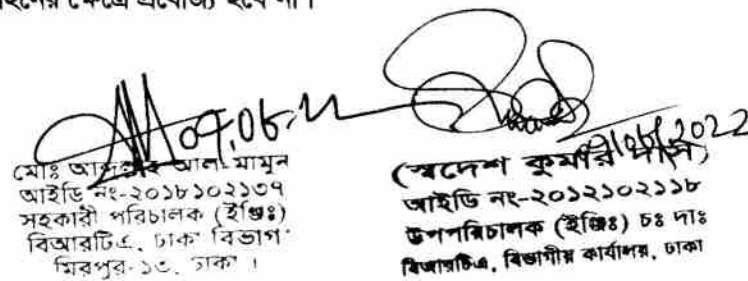 ক্ষেত্রে প্রযোজ্য হবে না।
07.06.22
মোঃ আল মামুন
আইডি নং-২০১৮১০২১৩৭
সহকারী পরিচালক (ইঞ্জিঃ)
বিআরটিএ, ঢাকা বিভাগ
মিরপুর-১৩, ঢাকা ।
2022
(স্বদেশ কুমার দাস)
আইডি নং-২০১২১০২১১৮
উপপরিচালক (ইঞ্জিঃ) চঃ দাঃ
বিআরটিএ, বিভাগীয় কার্যালয়, ঢাকা